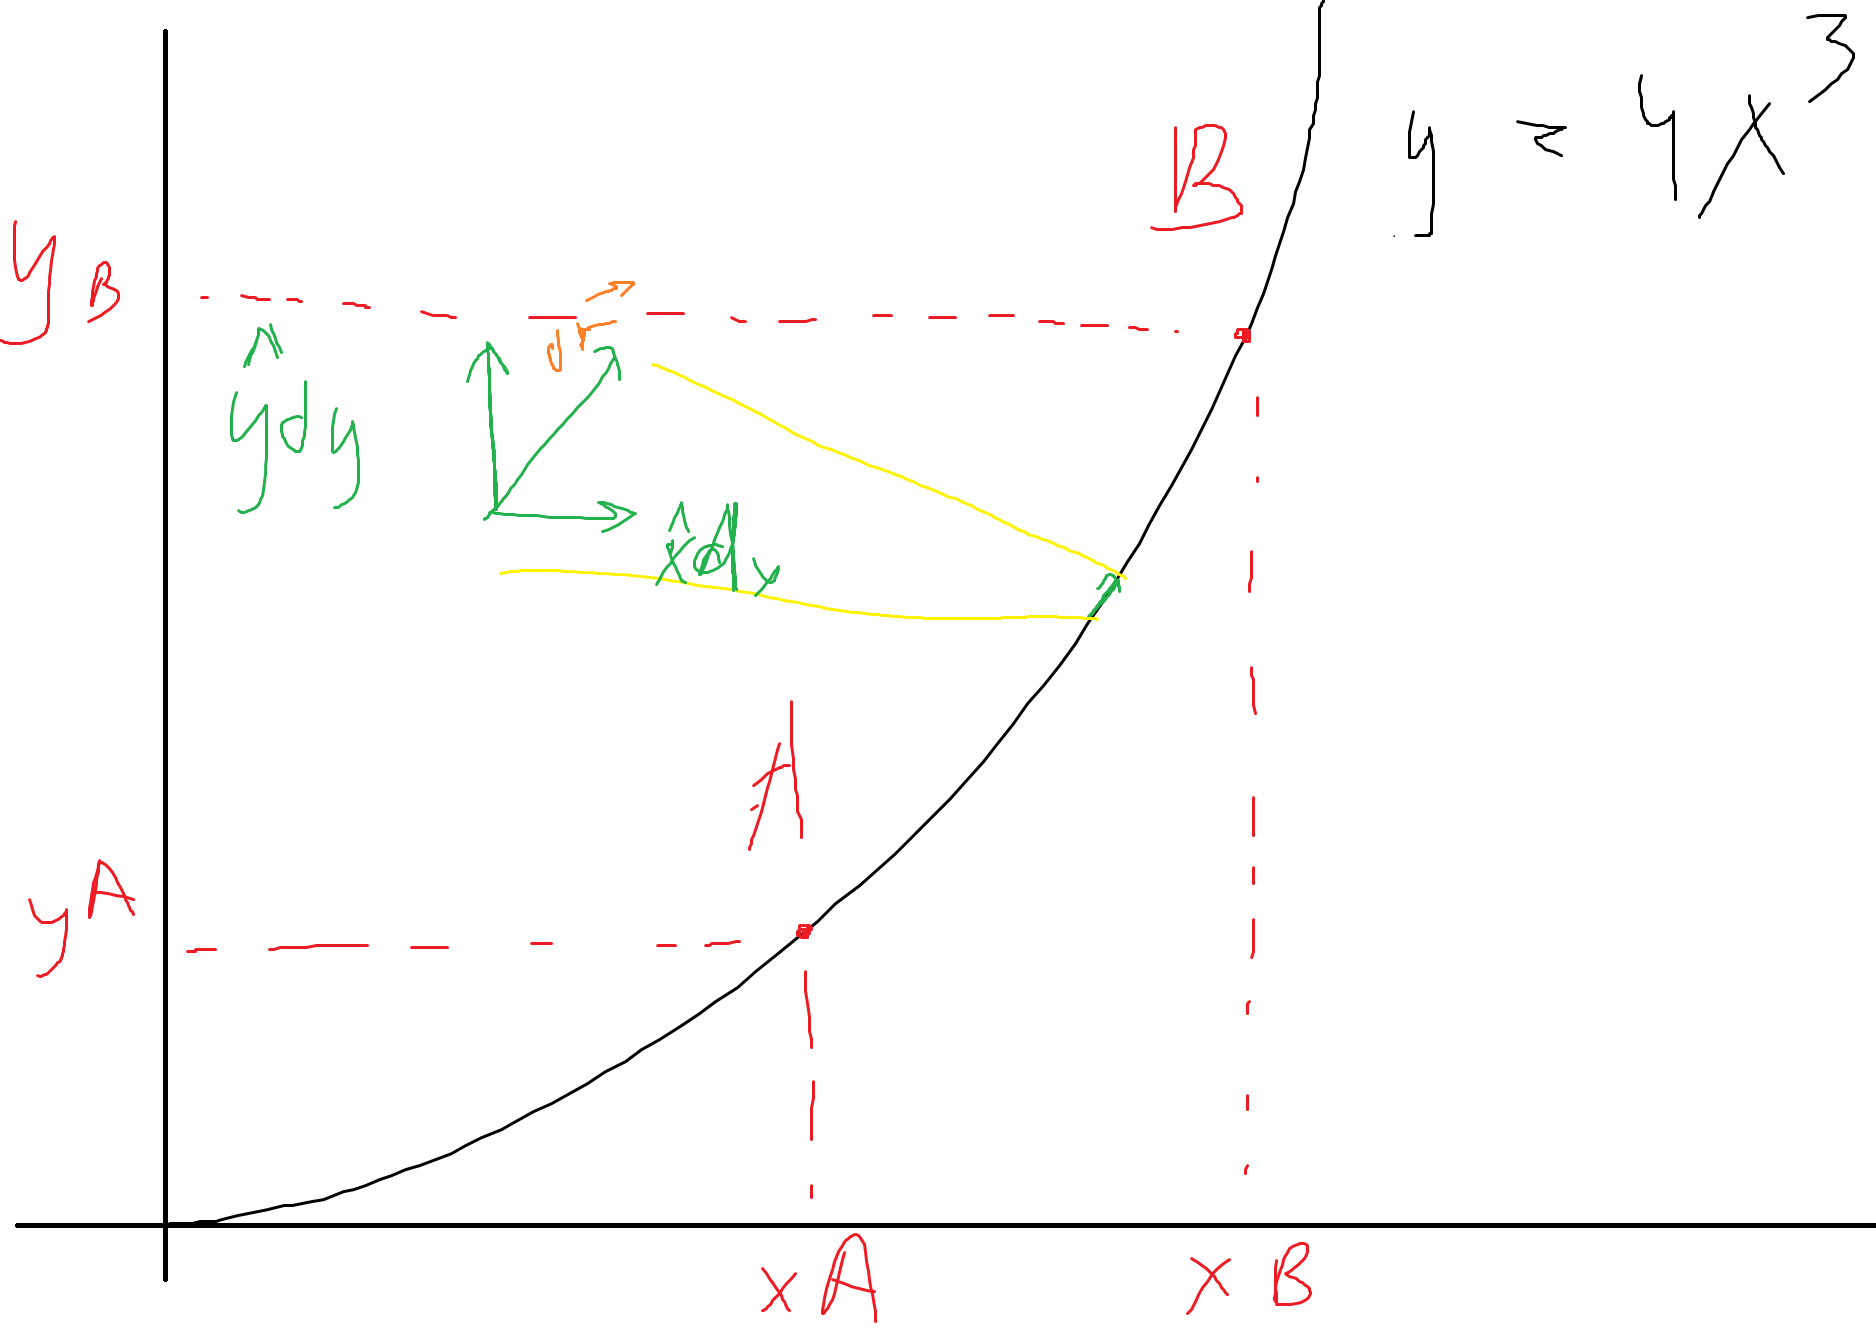 y = 4x³
B
yB
dr
ŷdy
x̂dx
A
yA
xA
xB